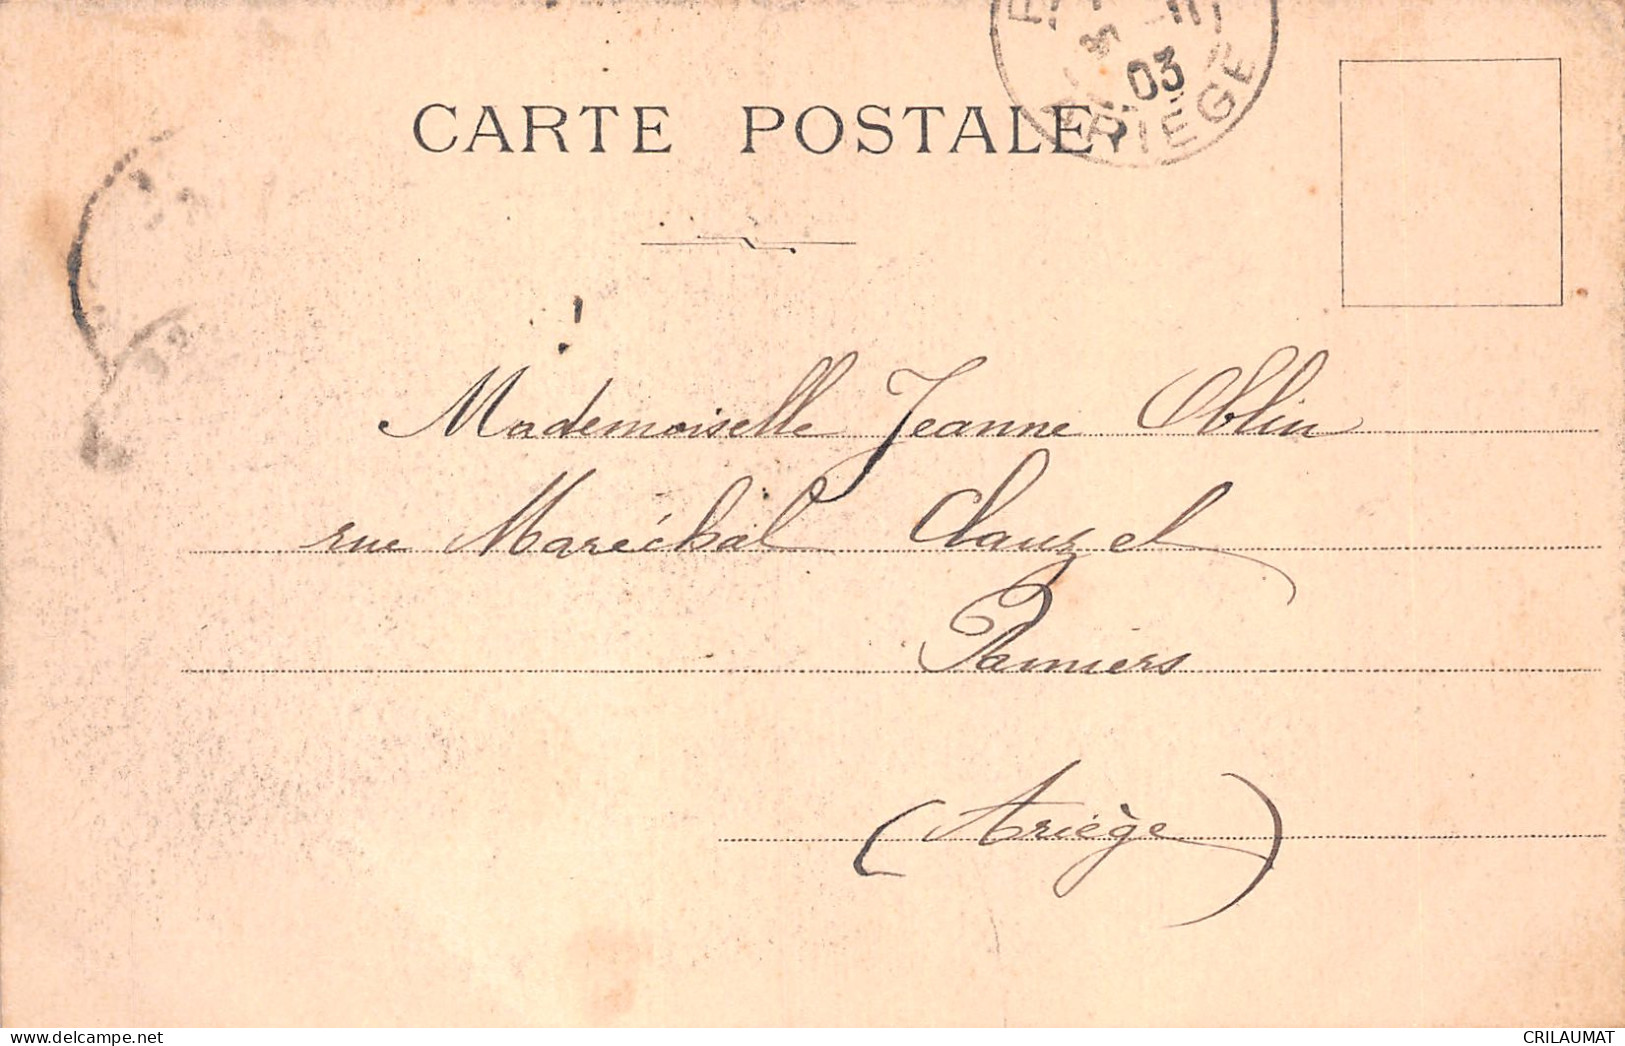 03
ARIÈGE
CARTE POSTALE
Mademoiselle Jeanne Oblin
rue Maréchal Clauzel
Pamiers
(Ariège)
www.delcampe.net
CRILAUMAT